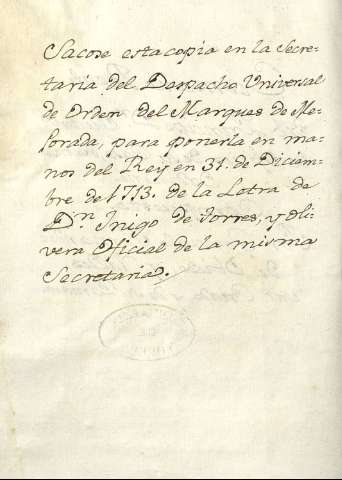 Sacose esta copia en la Secre-
taria del Despacho Universal
de Orden del Marques de Me-
jorada, para ponerla en ma-
nos del Rey en 31. de Diciem-
bre de 1713. de la Letra de
Dn. Inigo de torres, y oli-
vera Oficial de la misma
Secretaria.